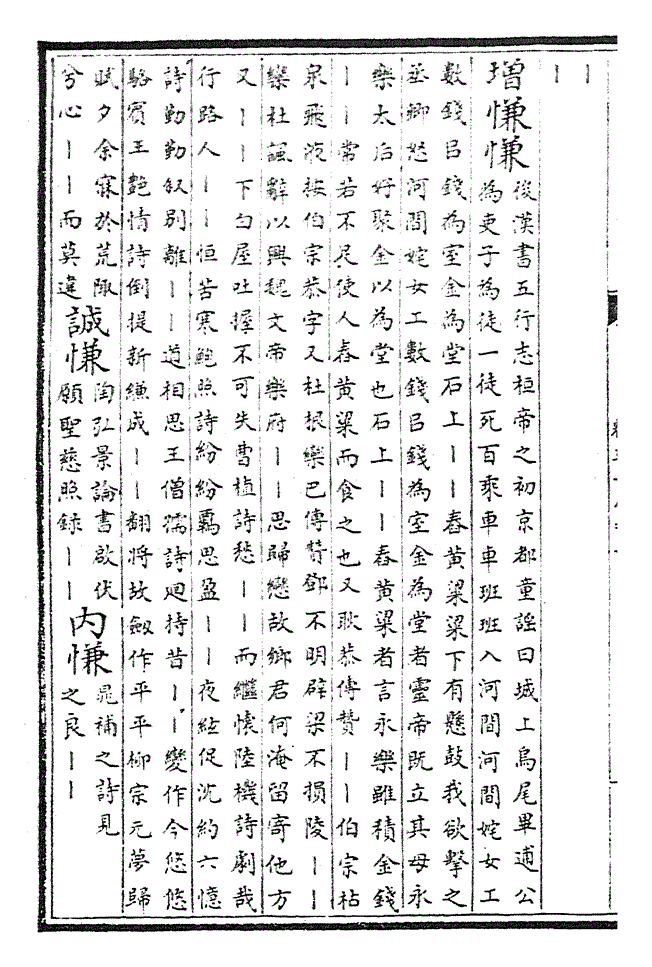 ｜
｜
增慊慊後漢書五行志桓帝之初京都童謡曰城上烏尾畢逋公
為吏子為徒一徒死百乘車車班班入河間河間姹女工
數錢㠯錢為室金為堂石上｜｜舂黄粱粱下有懸鼓我欲擊之
丞卿怒河間姹女工數錢㠯錢為室金為堂者靈帝既立其母永
樂太后好聚金以為堂也石上｜｜舂黄粱者言永樂雖積金錢
｜｜常若不足使人舂黄粱而食之也又耿恭傳贊｜｜伯宗枯
泉飛液按伯宗恭字又杜根欒巴傳贊鄧不明辟梁不損陵｜｜
欒杜諷辭以興魏文帝樂府｜｜思歸戀故鄉君何淹留寄他方
又｜｜下白屋吐握不可失曹植詩愁｜｜而繼懷陸機詩劇哉
行路人｜｜恒苦寒鮑照詩紛紛羇思盈｜｜夜絃促沈約六憶
詩勤勤叙别離｜｜道相思王僧孺詩廻持昔｜｜變作今悠悠
駱賓王艶情詩倒提新縑成｜｜翻將故劒作平平柳宗元夢歸
賦夕余寐於荒陬
兮心｜｜而莫違
誠慊陶弘景論書啟伏
願聖慈照録｜｜
内慊晁補之詩見
之良｜｜